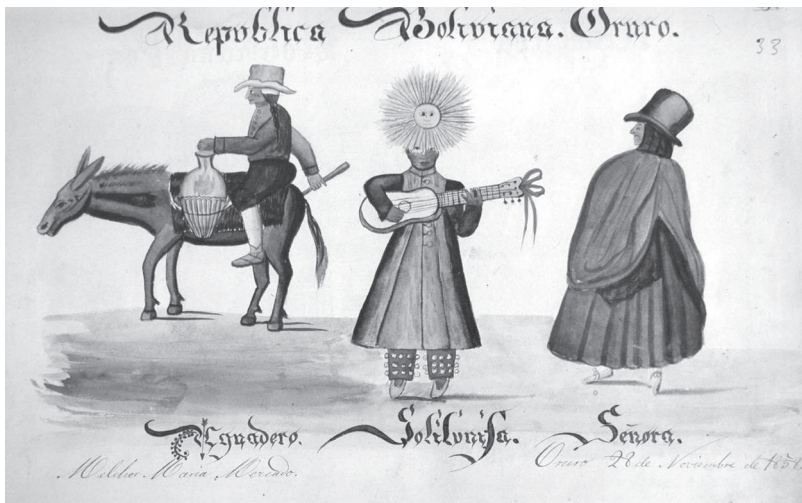 Republica Boliviana. Oruro.
33
Aguadero. Solilunisa. Señora.
Melchor Maria Mercado.
Oruro 28 de Noviembre de